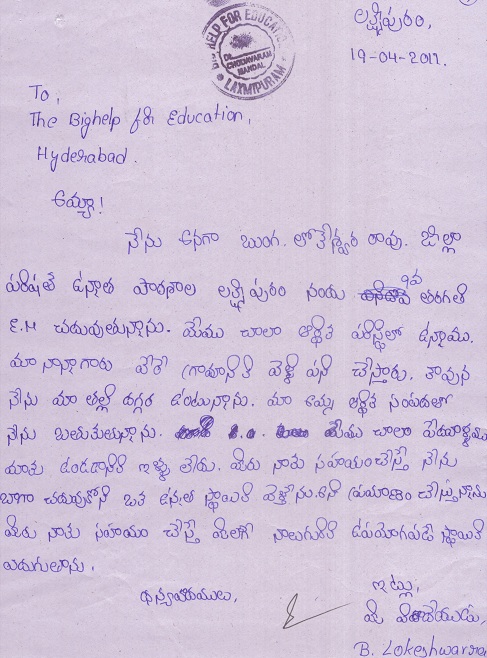 లక్ష్మీపురం,
19-04-2011.
BIG HELP FOR EDUCATION
CHEEDIVARAM
MANDAL
LAXMIPURAM
To,
The Bighelp for Education,
Hyderabad.
అయ్యా!
నేను అనగా బుంగ. లోకేశ్వర రావు. జిల్లా
పరిషత్ ఉన్నత పాఠశాల లక్ష్మీపురం నందు 9వ తరగతి
E.M చదువుతున్నాను. మేము చాలా ఆర్థిక పరిస్థితిలో ఉన్నాము.
మా నాన్నగారు వేరే గ్రామానికి వెళ్ళి పని చేస్తారు. కావున
నేను మా తల్లి దగ్గర ఉంటున్నాను. మా అమ్మ ఆర్థిక సంపదలో
నేను బ్రతుకుతున్నాను. మేము చాలా పేదవాళ్ళము
మాకు ఉండడానికి ఇళ్ళు లేదు. మీరు నాకు సహాయం చేస్తే నేను
బాగా చదువుకొని ఒక ఉన్నత స్థాయికి వెళ్తేను. అని ప్రమాణం చేస్తున్నాను
మీరు నాకు సహాయం చేస్తే మీలాగే నాలుగురికి ఉపయోగపడే స్థాయికి
ఎదుగుతాను.
ధన్యవాదములు,
ఇట్లు,
మీ విధేయుడు,
B. Lokeshwarrao